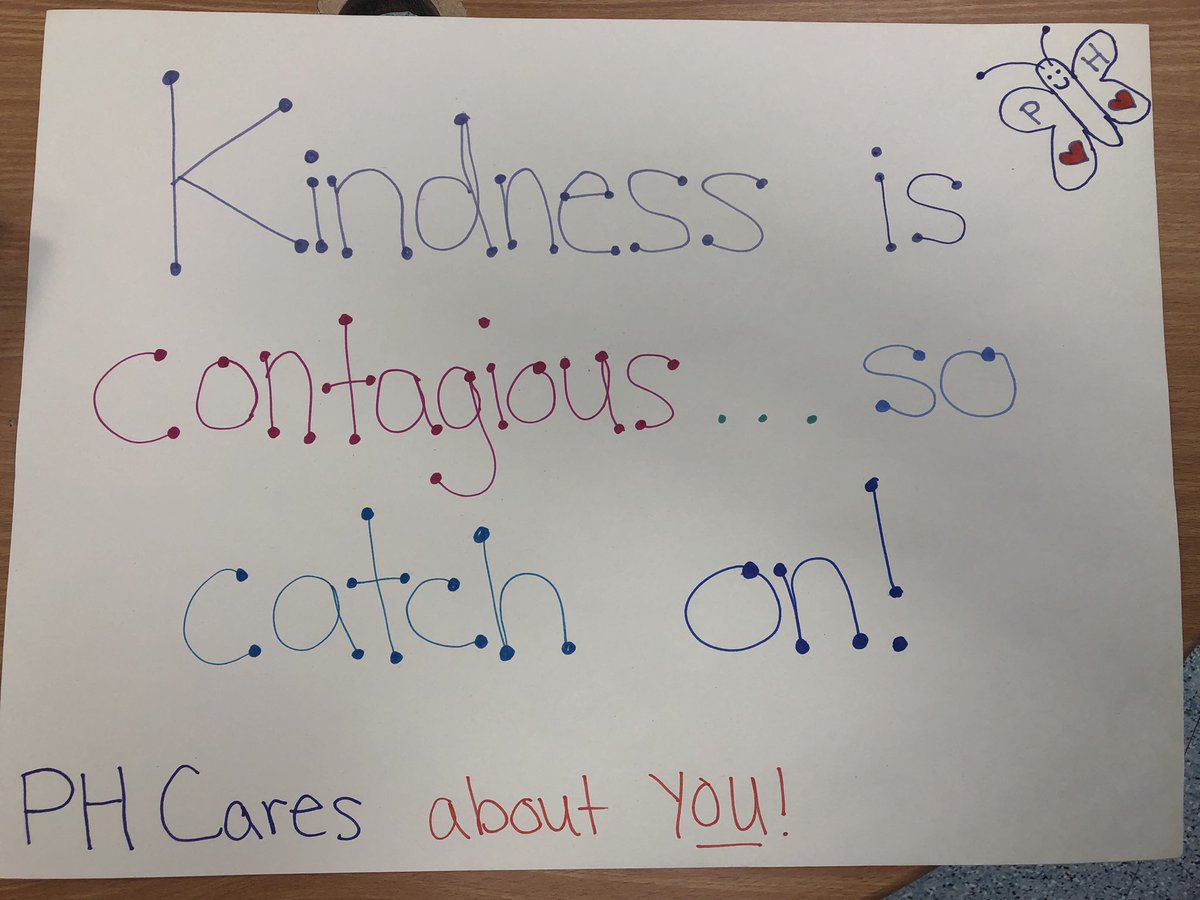 P H
Kindness is
contagious... so
catch on!
PH Cares about YOU!